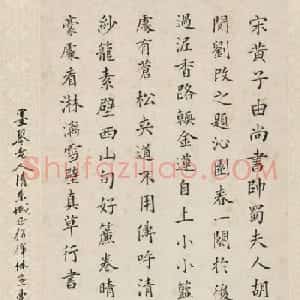 宋黃子由尚書帥蜀夫人胡
閱劉改之題沁園春一闋於後
過泥香路輭金蓮自上小小籃
處有蒼松夾道不用傳呼清
紗籠素壁西山句好簾卷晴
豪處看淋漓雪壁真草行書
墨琴
Shufaziliao.com